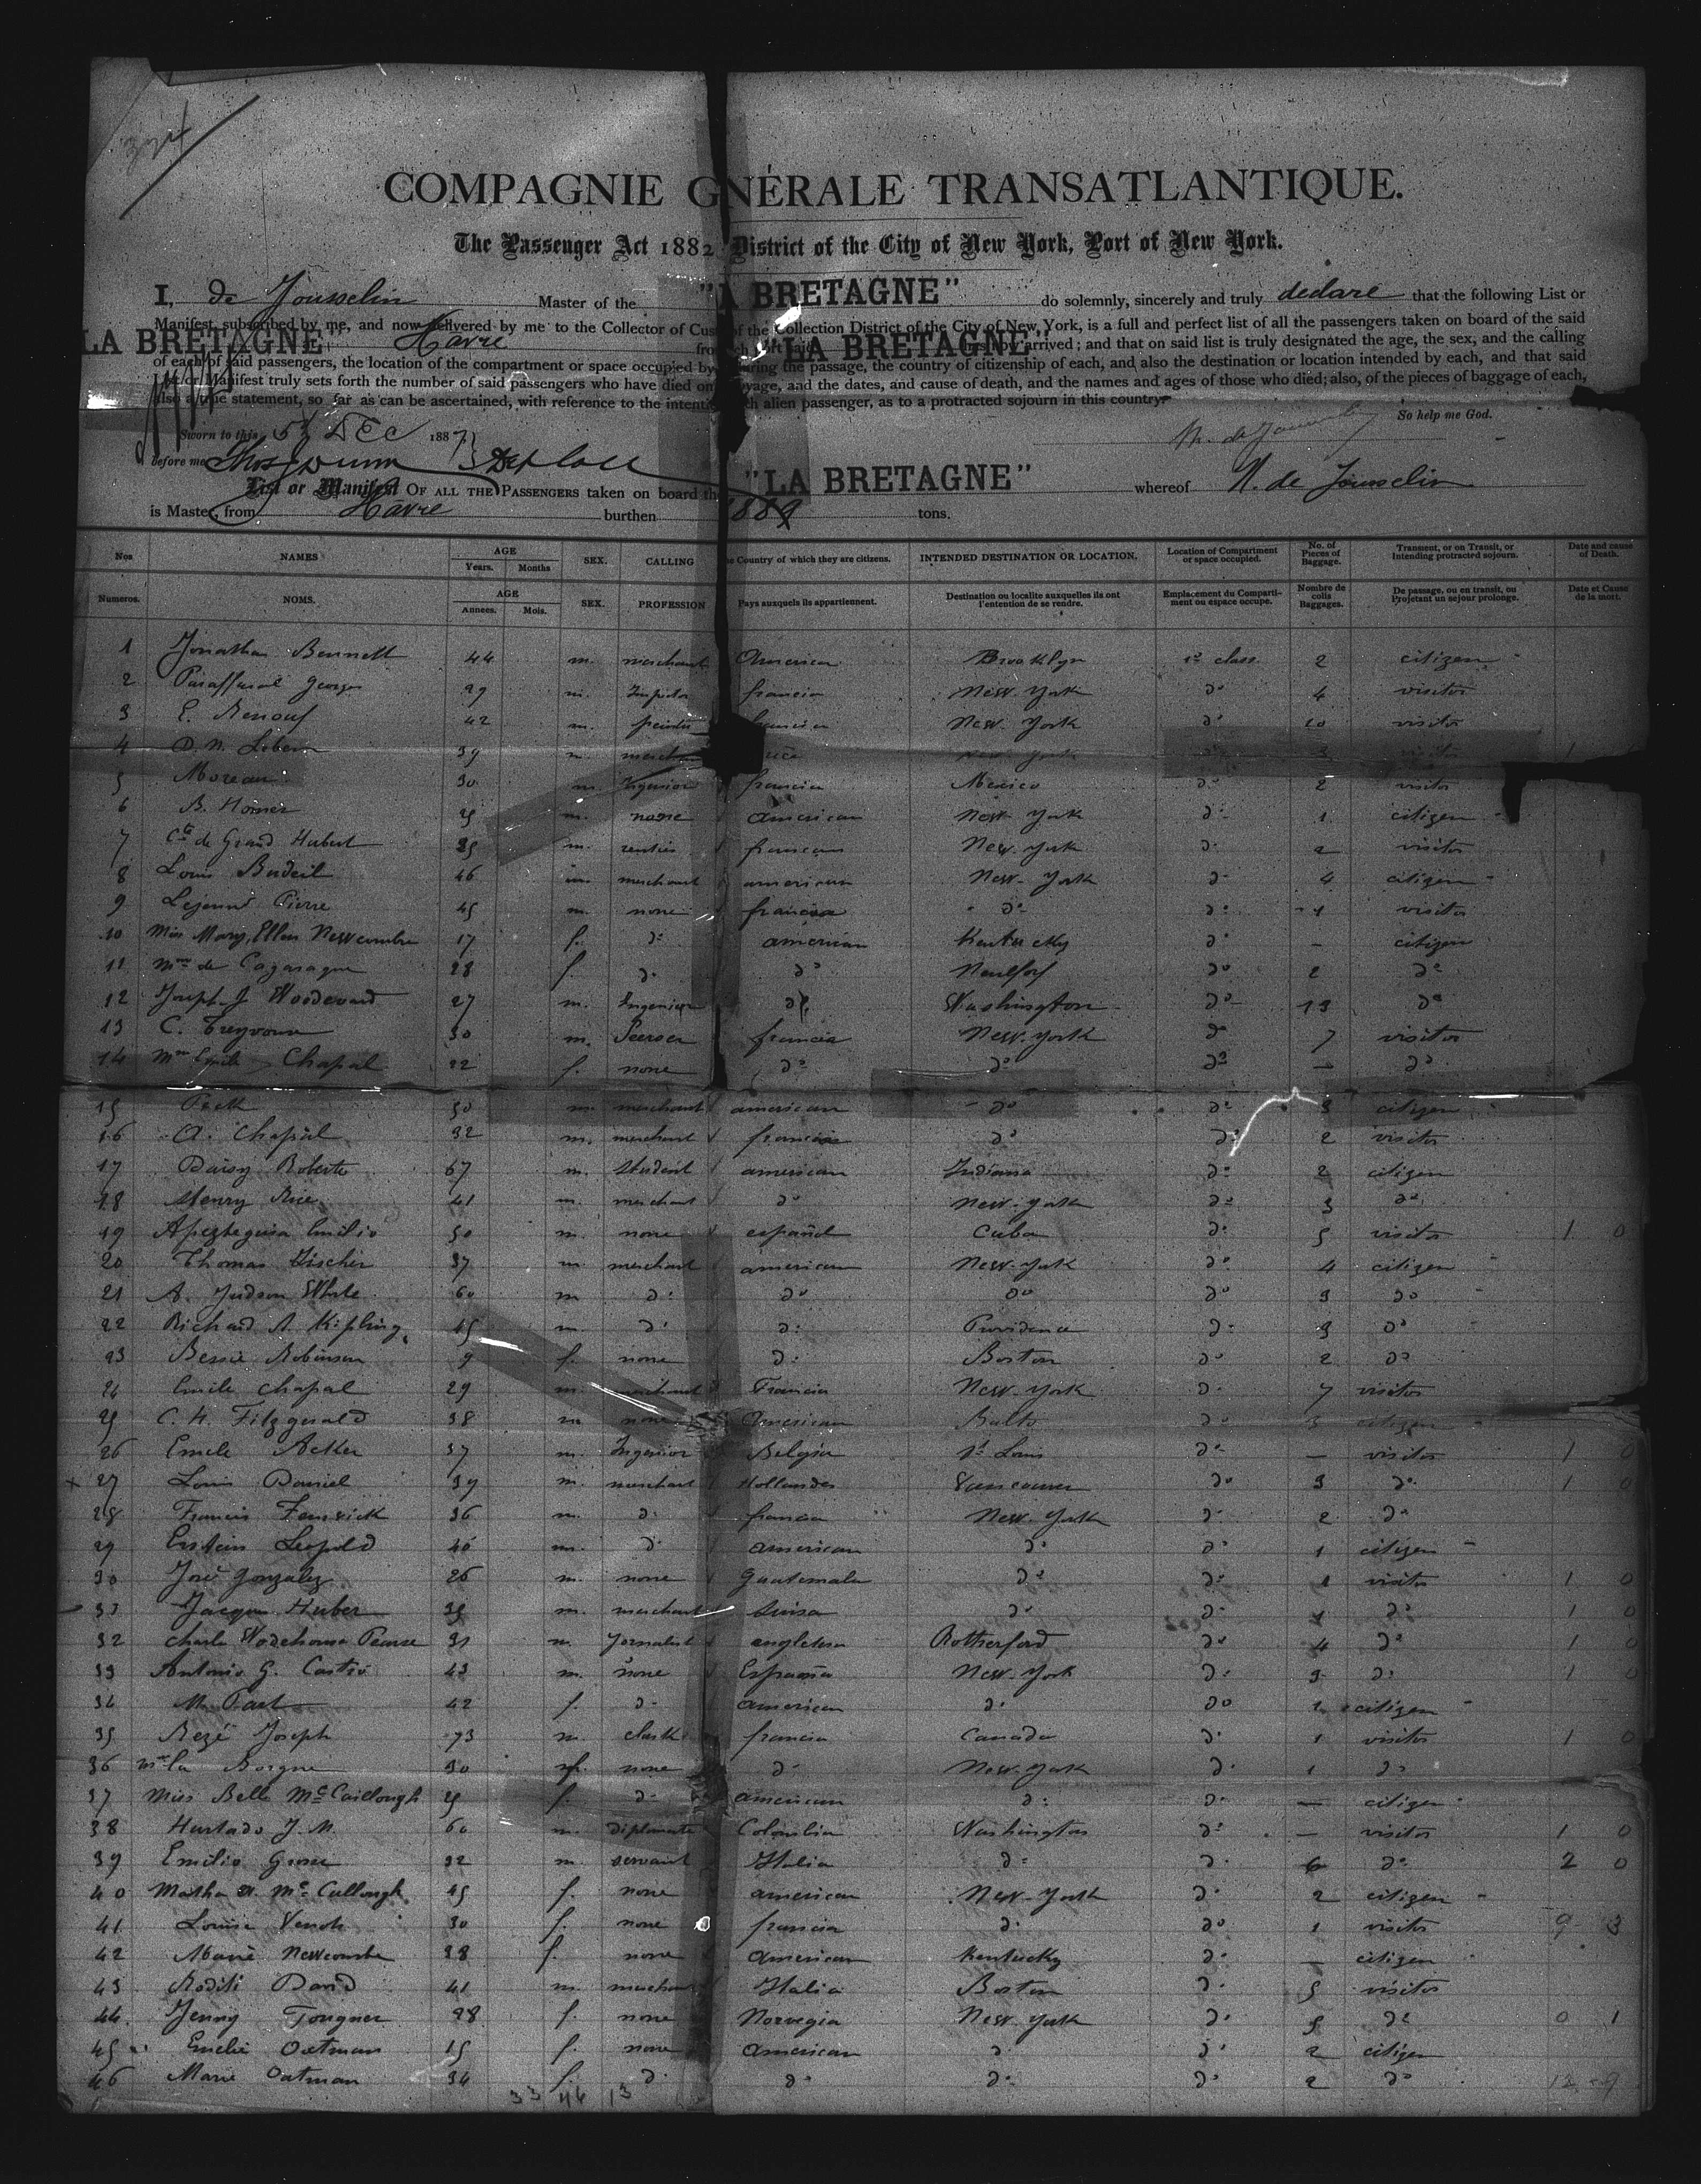 COMPAGNIE GNÉRALE TRANSATLANTIQUE.
The Passenger Act 1882 District of the City of New York, Port of New York.
I, de Jousselin Master of the "A BRETAGNE" do solemnly, sincerely and truly declare that the following List or
Manifest, subscribed by me, and now delivered by me to the Collector of Cus of the Collection District of the City of New York, is a full and perfect list of all the passengers taken on board of the said
LA BRETAGNE Havre from "LA BRETAGNE" now arrived; and that on said list is truly designated the age, the sex, and the calling
of each of said passengers, the location of the compartment or space occupied by during the passage, the country of citizenship of each, and also the destination or location intended by each, and that said
List or Manifest truly sets forth the number of said passengers who have died on voyage, and the dates, and cause of death, and the names and ages of those who died; also, of the pieces of baggage of each,
also a true statement, so far as can be ascertained, with reference to the intenti alien passenger, as to a protracted sojourn in this country.
So help me God.
Sworn to this 5th DEC 1887
before me
List or Manifest OF ALL THE PASSENGERS taken on board the "LA BRETAGNE" whereof N. de Jousselin
is Master, from Havre burthen 1889 tons.
Nos NAMES AGE Years. Months SEX. CALLING Country of which they are citizens. INTENDED DESTINATION OR LOCATION. Location of Compartment or space occupied. No. of Pieces of Baggage. Tranment, or on Transit, or Intending protracted sojourn. Date and cause of Death.
Numeros. NOMS. AGE Annees. Mois. SEX. PROFESSION Pays auxquels ils appartiennent. Destination ou localite auxquelles ils ont l'intention de se rendre. Emplacement du Compartiment ou espace occupe. Nombre de colis Baggages. De passage, ou en transit, ou Projetant un sejour prolonge. Date et Cause de la mort.
1 Jonathan Bennett 44 m. merchant American Brooklyn 1e class 2 citizen
2 George 27 m. francia New-York do 4 visitor
3 E. Renouf 42 m. New York do 10 visitor
4 D. N. 39 m. merchan New York 3 visitor
5 Moreau 30 m. Ingenior francia Mexico do 2 visitor
6 B. Homer 25 m. none American New York do 1 citizen
7 Cte de Grand Hubert m. rentier francam New-York do 2 visitor
8 Louis 46 m. merchant american New-York do 4 citizen
9 Pierre 45 m. none francia do do 1 visitor
10 Miss Mary, Ellen Newcombe 17 f. do american Kentucky do - citizen
11 Mme de 28 f. do do do 2 do
12 Joseph J Woodward 27 m. Ingenior do Washington do 13 do
13 C. 30 m. francia New-York do 7 visitor
14 Mme Emile Chapal 22 f. none do do do - do
15 50 m. merchant american do do 3 citizen
16 A. Chapal 32 m. merchant francia do do 2 visitor
17 Daisy Roberts 67 m. student american Indiana do 2 citizen
18 Henry Rice 41 m. merchant do New-York do 3 do
19 Apezteguia Emilio 50 m. none español Cuba do 5 visitor 1 0
20 Thomas Fischer 37 m. merchant american New-York do 4 citizen
21 A. Judson White 60 m do do do do 3 do
22 Richard A. Kipling 45 m. do do Providence do 3 do
23 Bessie Robinson 9 f. none do Boston do 2 do
24 Emile Chapal 29 m. merchant Francia New-York do 7 visitor
25 C. H. Fitzgerald 38 m none American Balto do 3 citizen
26 Emile Acker 37 m. Ingenior Belgia St Louis do - visitor 1 0
27 Louis Daniel 39 m. merchant Hollandes Vancouver do 3 do 1 0
28 Francis Fenwick 36 m. do francia New-York do 2 do
29 Leopold 46 m. do american do do 1 citizen
30 José Gonzalez 26 m. none Guatemala do do 1 visitor 1 0
31 Jacques Huber 35 m. merchant Suisa do do 1 do 1 0
32 Charles Wodehouse Pearse 31 m. Jornalist angleterra Rotherford do 4 do 1 0
33 Antonio G. Castro 43 m. none España New-York do 3 do 1 0
34 M. 42 f. do american do do 1 citizen
35 Regé Joseph 73 m. clark francia Canada do 1 visitor 1 0
36 Mme la Borgne 30 f. none do New-York do 1 do
37 Miss Belle Mc Caillough 25 f. do american do do - citizen
38 Hurtado J. M. 60 m. diplomate Colombia Washington do - visitor 1 0
39 Emilio Grosse 32 m. servant Italia do do 6 do 2 0
40 Martha Mc Cullough 45 f. none american New-York do 2 citizen
41 Louise 30 f. none francia do do 1 visitor 9 3
42 Marie Newcombe 28 f. none American Kentucky do - citizen
43 Roditi David 41 m. merchan Italia Boston do 5 visitor
44. Jenny Tougner 28 f. none Norvegia New York do 5 do 0 1
45 Emelie Oatman 15 f. none American do do 2 citizen
46 Marie Oatman 34 f. do do do do 2 do 12 9
33 46 13